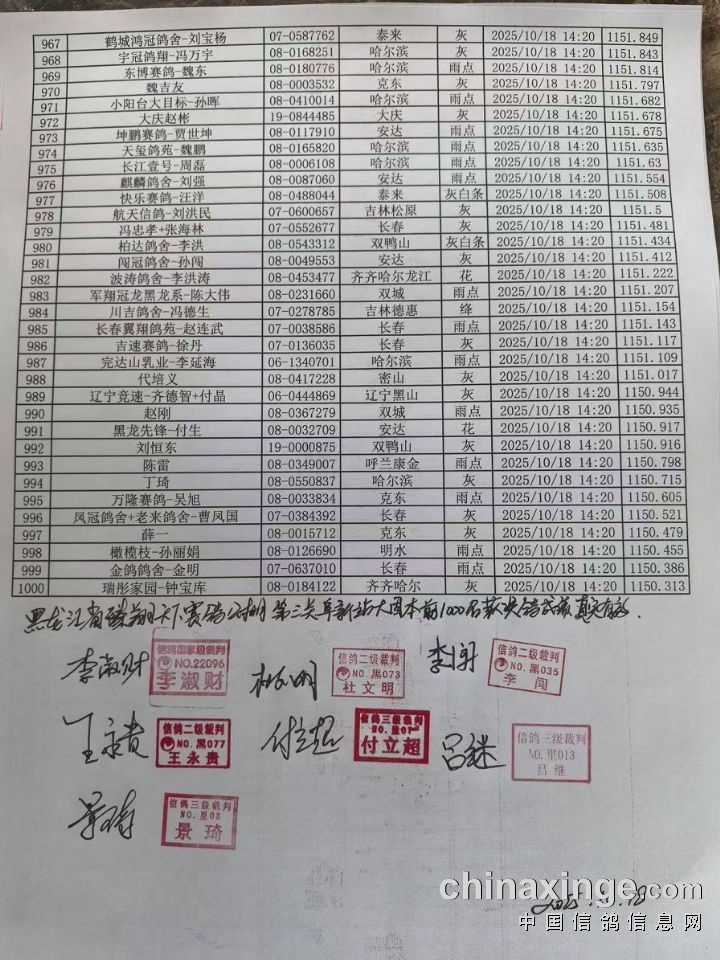 967 鹤城鸿冠鸽舍-刘宝杨 07-0587762 泰来 灰 2025/10/18 14:20 1151.849
968 宇冠鸽翔-冯万宇 08-0168251 哈尔滨 灰 2025/10/18 14:20 1151.843
969 东博赛鸽-魏东 08-0180776 哈尔滨 雨点 2025/10/18 14:20 1151.814
970 魏吉友 08-0003532 克东 灰 2025/10/18 14:20 1151.797
971 小阳台大目标-孙晖 08-0410014 哈尔滨 雨点 2025/10/18 14:20 1151.682
972 大庆赵彬 19-0844485 大庆 灰 2025/10/18 14:20 1151.678
973 坤鹏赛鸽-贾世坤 08-0117910 安达 雨点 2025/10/18 14:20 1151.675
974 天玺鸽苑-魏鹏 08-0165820 哈尔滨 雨点 2025/10/18 14:20 1151.635
975 长江壹号-周磊 08-0006108 哈尔滨 雨点 2025/10/18 14:20 1151.63
976 麒麟鸽舍-刘强 08-0087060 安达 雨点 2025/10/18 14:20 1151.554
977 快乐赛鸽-汪洋 08-0488044 泰来 灰白条 2025/10/18 14:20 1151.508
978 航天信鸽-刘洪民 07-0600657 吉林松原 灰 2025/10/18 14:20 1151.5
979 冯忠孝+张海林 07-0552677 长春 灰 2025/10/18 14:20 1151.481
980 柏达鸽舍-李洪 08-0543312 双鸭山 灰白条 2025/10/18 14:20 1151.434
981 闯冠鸽舍-孙闯 08-0049553 安达 灰 2025/10/18 14:20 1151.412
982 波涛鸽舍-李洪涛 08-0453477 齐齐哈尔龙江 花 2025/10/18 14:20 1151.222
983 军翔冠龙黑龙系-陈大伟 08-0231660 双城 雨点 2025/10/18 14:20 1151.207
984 川吉鸽舍-冯德生 07-0278785 吉林德惠 绛 2025/10/18 14:20 1151.154
985 长春翼翔鸽苑-赵连武 07-0038586 长春 雨点 2025/10/18 14:20 1151.143
986 吉速赛鸽-徐丹 07-0136035 长春 灰 2025/10/18 14:20 1151.117
987 完达山乳业-李延海 06-1340701 哈尔滨 雨点 2025/10/18 14:20 1151.109
988 代培义 08-0417228 密山 灰 2025/10/18 14:20 1151.017
989 辽宁竞速-齐德智+付晶 06-0444869 辽宁黑山 灰 2025/10/18 14:20 1150.944
990 赵刚 08-0367279 双城 雨点 2025/10/18 14:20 1150.935
991 黑龙先锋-付生 08-0032709 安达 花 2025/10/18 14:20 1150.917
992 刘恒东 19-0000875 双鸭山 灰 2025/10/18 14:20 1150.916
993 陈雷 08-0349007 呼兰康金 雨点 2025/10/18 14:20 1150.798
994 丁琦 08-0550837 哈尔滨 灰 2025/10/18 14:20 1150.715
995 万隆赛鸽-吴旭 08-0033834 克东 雨点 2025/10/18 14:20 1150.605
996 凤冠鸽舍+老来鸽舍-曹凤国 07-0384392 长春 灰 2025/10/18 14:20 1150.521
997 薛一 08-0015712 克东 灰 2025/10/18 14:20 1150.479
998 橄榄枝-孙丽娟 08-0126690 明水 雨点 2025/10/18 14:20 1150.455
999 金鸽鸽舍-金明 07-0637010 长春 雨点 2025/10/18 14:20 1150.386
1000 瑞彤家园-钟宝库 08-0184122 齐齐哈尔 灰 2025/10/18 14:20 1150.313
黑龙江省 翔天下赛鸽公棚 第三关阜新站大团体前1000名获奖鸽 真实有效.
李淑财 信鸽国家级裁判 NO.22096 李淑财
杜文明 信鸽二级裁判 NO.黑073 杜文明
李闯 信鸽二级裁判 NO.黑035 李闯
王永贵 信鸽二级裁判 NO.黑077 王永贵
付立超 信鸽三级裁判 付立超
吕继 信鸽三级裁判 NO.里013 吕继
景琦 信鸽三级裁判 NO.里08 景琦
chinaxinge.com
中国信鸽信息网